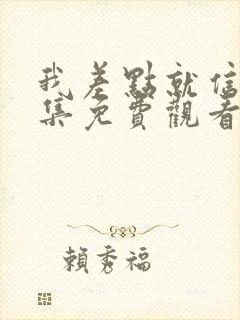 我差點就信
集免費觀看
賴秀福